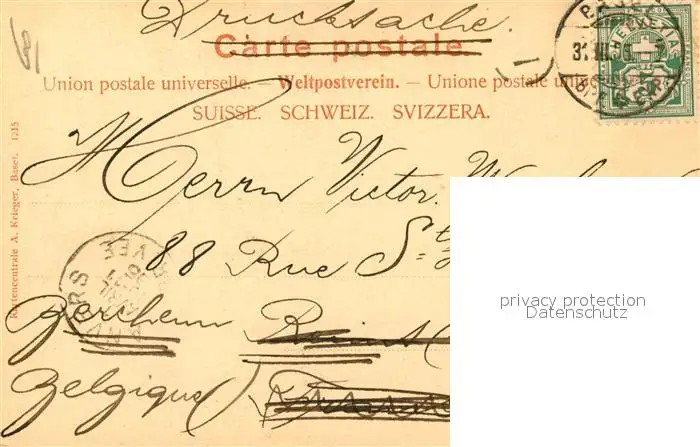 Drucksache.
Carte postale.
Union postale universelle. — Weltpostverein. — Unione postale
SUISSE. SCHWEIZ. SVIZZERA.
Kartencentrale A. Krieger, Basel. 1215
HELVETIA
Herrn Victor
88 Rue St
ANVERS
Berchem Reims
Belgique
privacy protection
Datenschutz